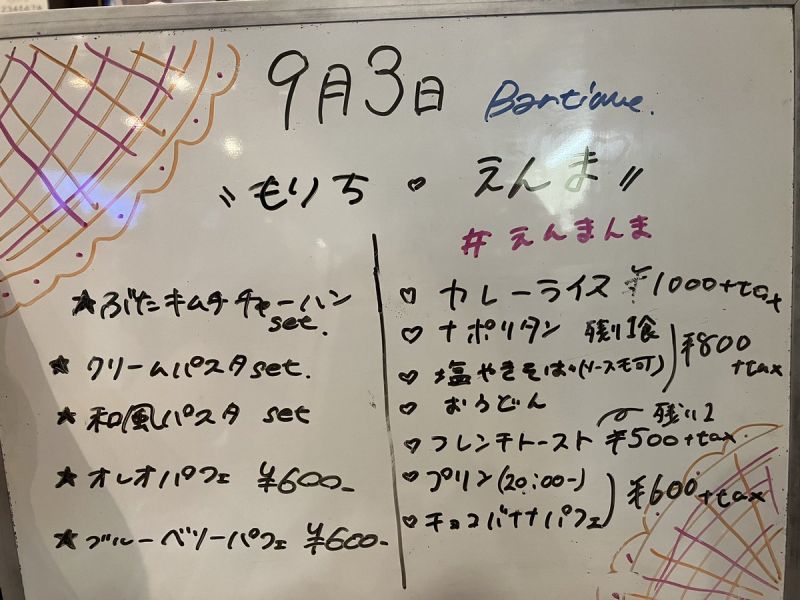 9月3日 Bartique.
〃もりち ♡ えんま〃
#えんまんま
★ぶたキムチチャーハン
set.
★クリームパスタset.
★和風パスタ set
★オレオパフェ ¥600-
★ブルーベリーパフェ ¥600-
♡カレーライス ¥1000+tax
♡ナポリタン 残り1食
♡塩やきそば(ソースモ可)
¥800
+tax
♡おうどん
残り2
♡フレンチトースト ¥500+tax
♡プリン(20:00-)
♡チョコバナナパフェ
¥600+tax